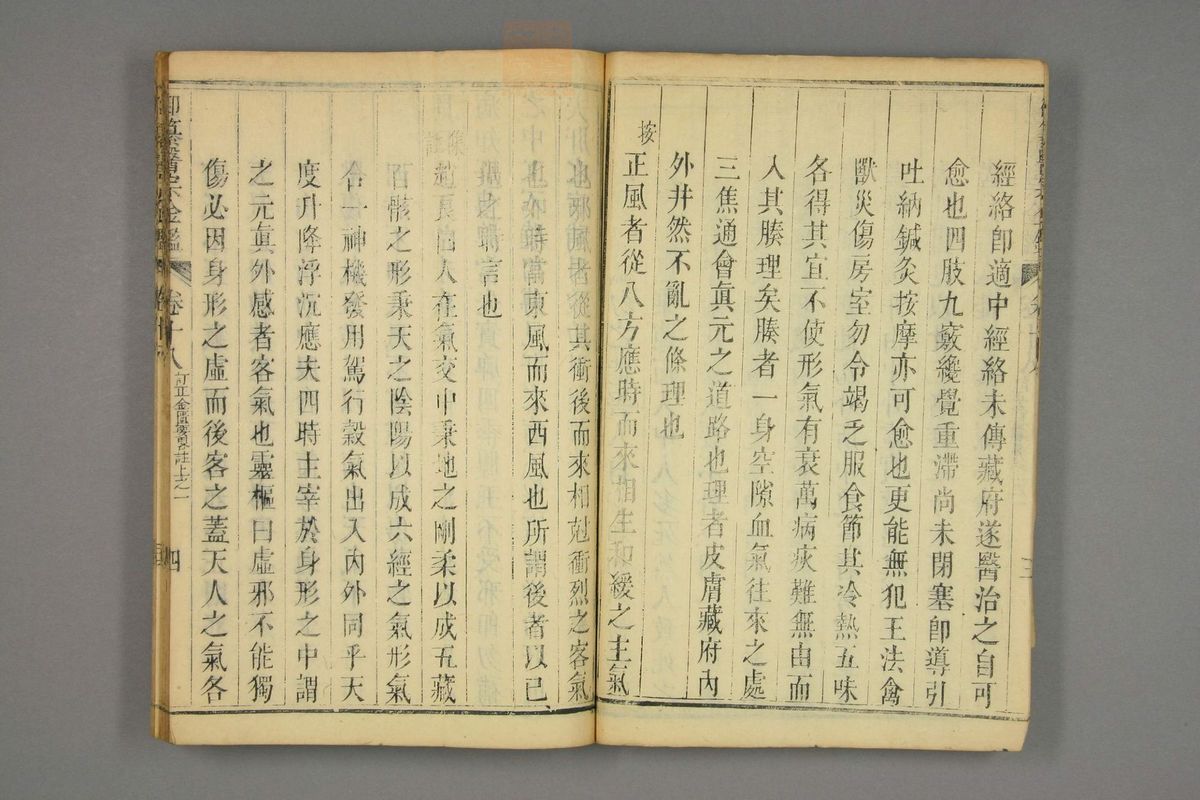 經絡卽適中經絡未傳藏府遂醫治之自可
愈也四肢九竅纔覺重滯尚未閉塞卽導引
吐納鍼灸按摩亦可愈也更能無犯王法禽
獸災傷房室勿令竭乏服食節其冷熱五味
各得其宜不使形氣有衰萬病疢難無由而
入其腠理矣腠者一身空隙血氣往來之處
三焦通會眞元之道路也理者皮膚藏府內
外井然不亂之條理也
按
正風者從八方應時而來相生和緩之主氣
也虛風者從其衝後而來相尅衝烈之客氣
東風而來西風也所謂後者以已
言也
趙良曰人在氣交中秉地之剛柔以成五藏
百骸之形秉天之陰陽以成六經之氣形氣
合一神機發用駕行穀氣出入內外同乎天
度升降浮沉應夫四時主宰於身形之中謂
之元眞外感者客氣也靈樞曰虛邪不能獨
傷必因身形之虛而後客之蓋天人之氣各
御纂醫宗金鑑
卷十八
訂正金匱要畧註上之一
四